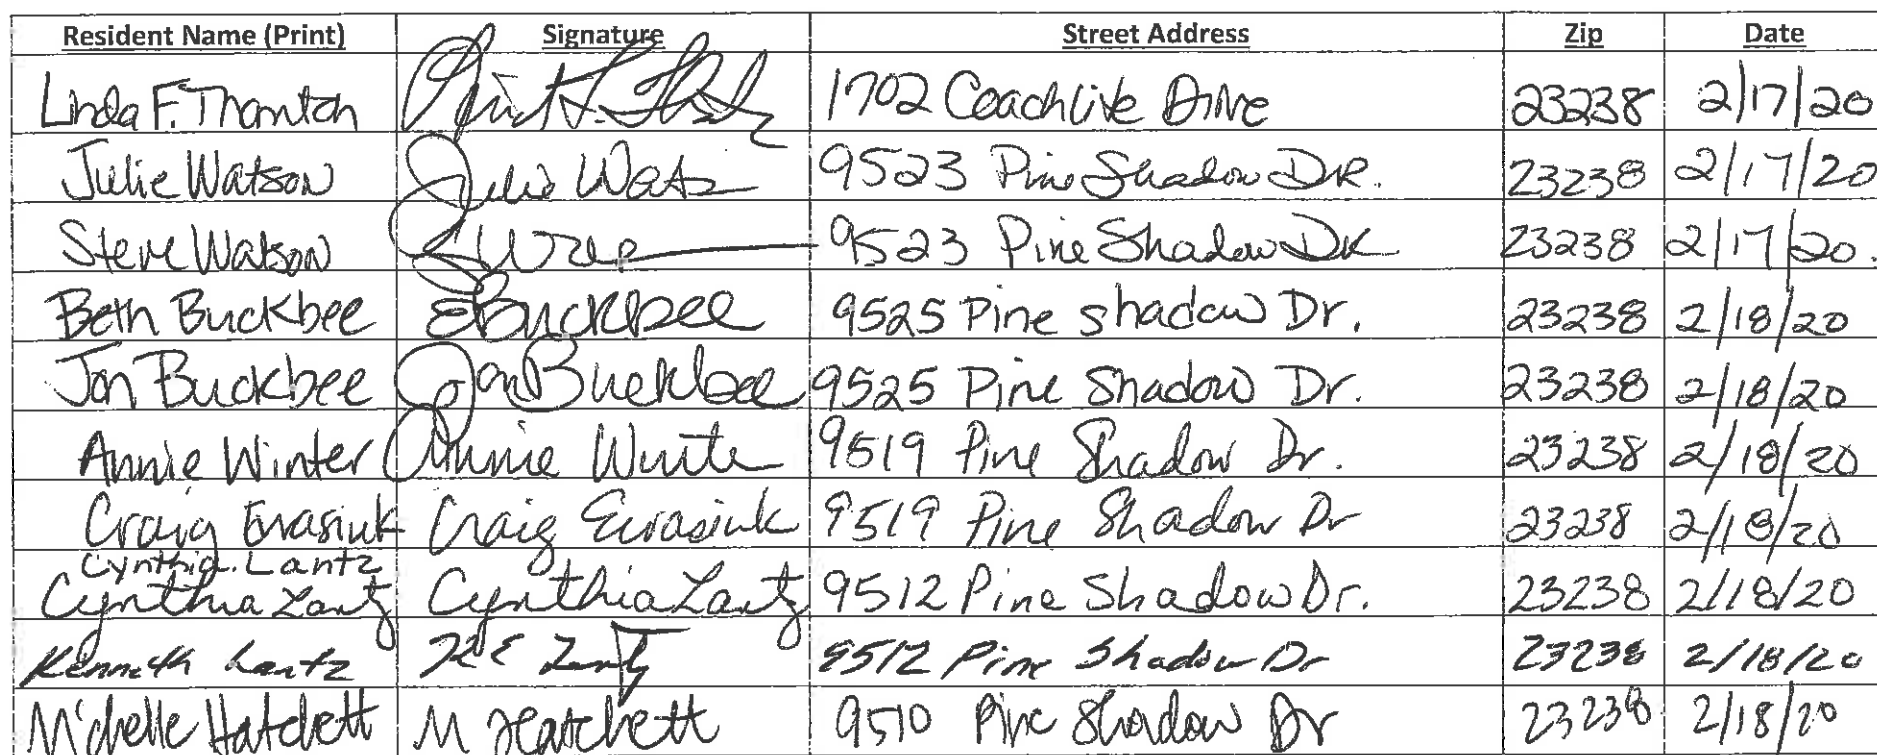 Resident Name (Print) Signature Street Address Zip Date
Linda F. Thornton 1702 Coachlite Drive 23238 2/17/20
Julie Watson Julie Wats 9523 Pine Shadow DR. 23238 2/17/20
Steve Watson 9523 Pine Shadow DR 23238 2/17/20.
Beth Buckbee EBuckbee 9525 Pine shadow Dr. 23238 2/18/20
Jon Buckbee Jon Buckbee 9525 Pine Shadow Dr. 23238 2/18/20
Annie Winter Annie Winter 9519 Pine Shadow Dr. 23238 2/18/20
Craig Evasiuk Craig Evasiuk 9519 Pine Shadow Dr 23238 2/18/20
Cynthia Lantz
Cynthia Lantz Cynthia Lantz 9512 Pine Shadow Dr. 23238 2/18/20
Kenneth Lantz K E Lantz 9512 Pine Shadow Dr 23238 2/18/20
Michelle Hatchett M Hatchett 9510 Pine Shadow Dr 23238 2/18/20